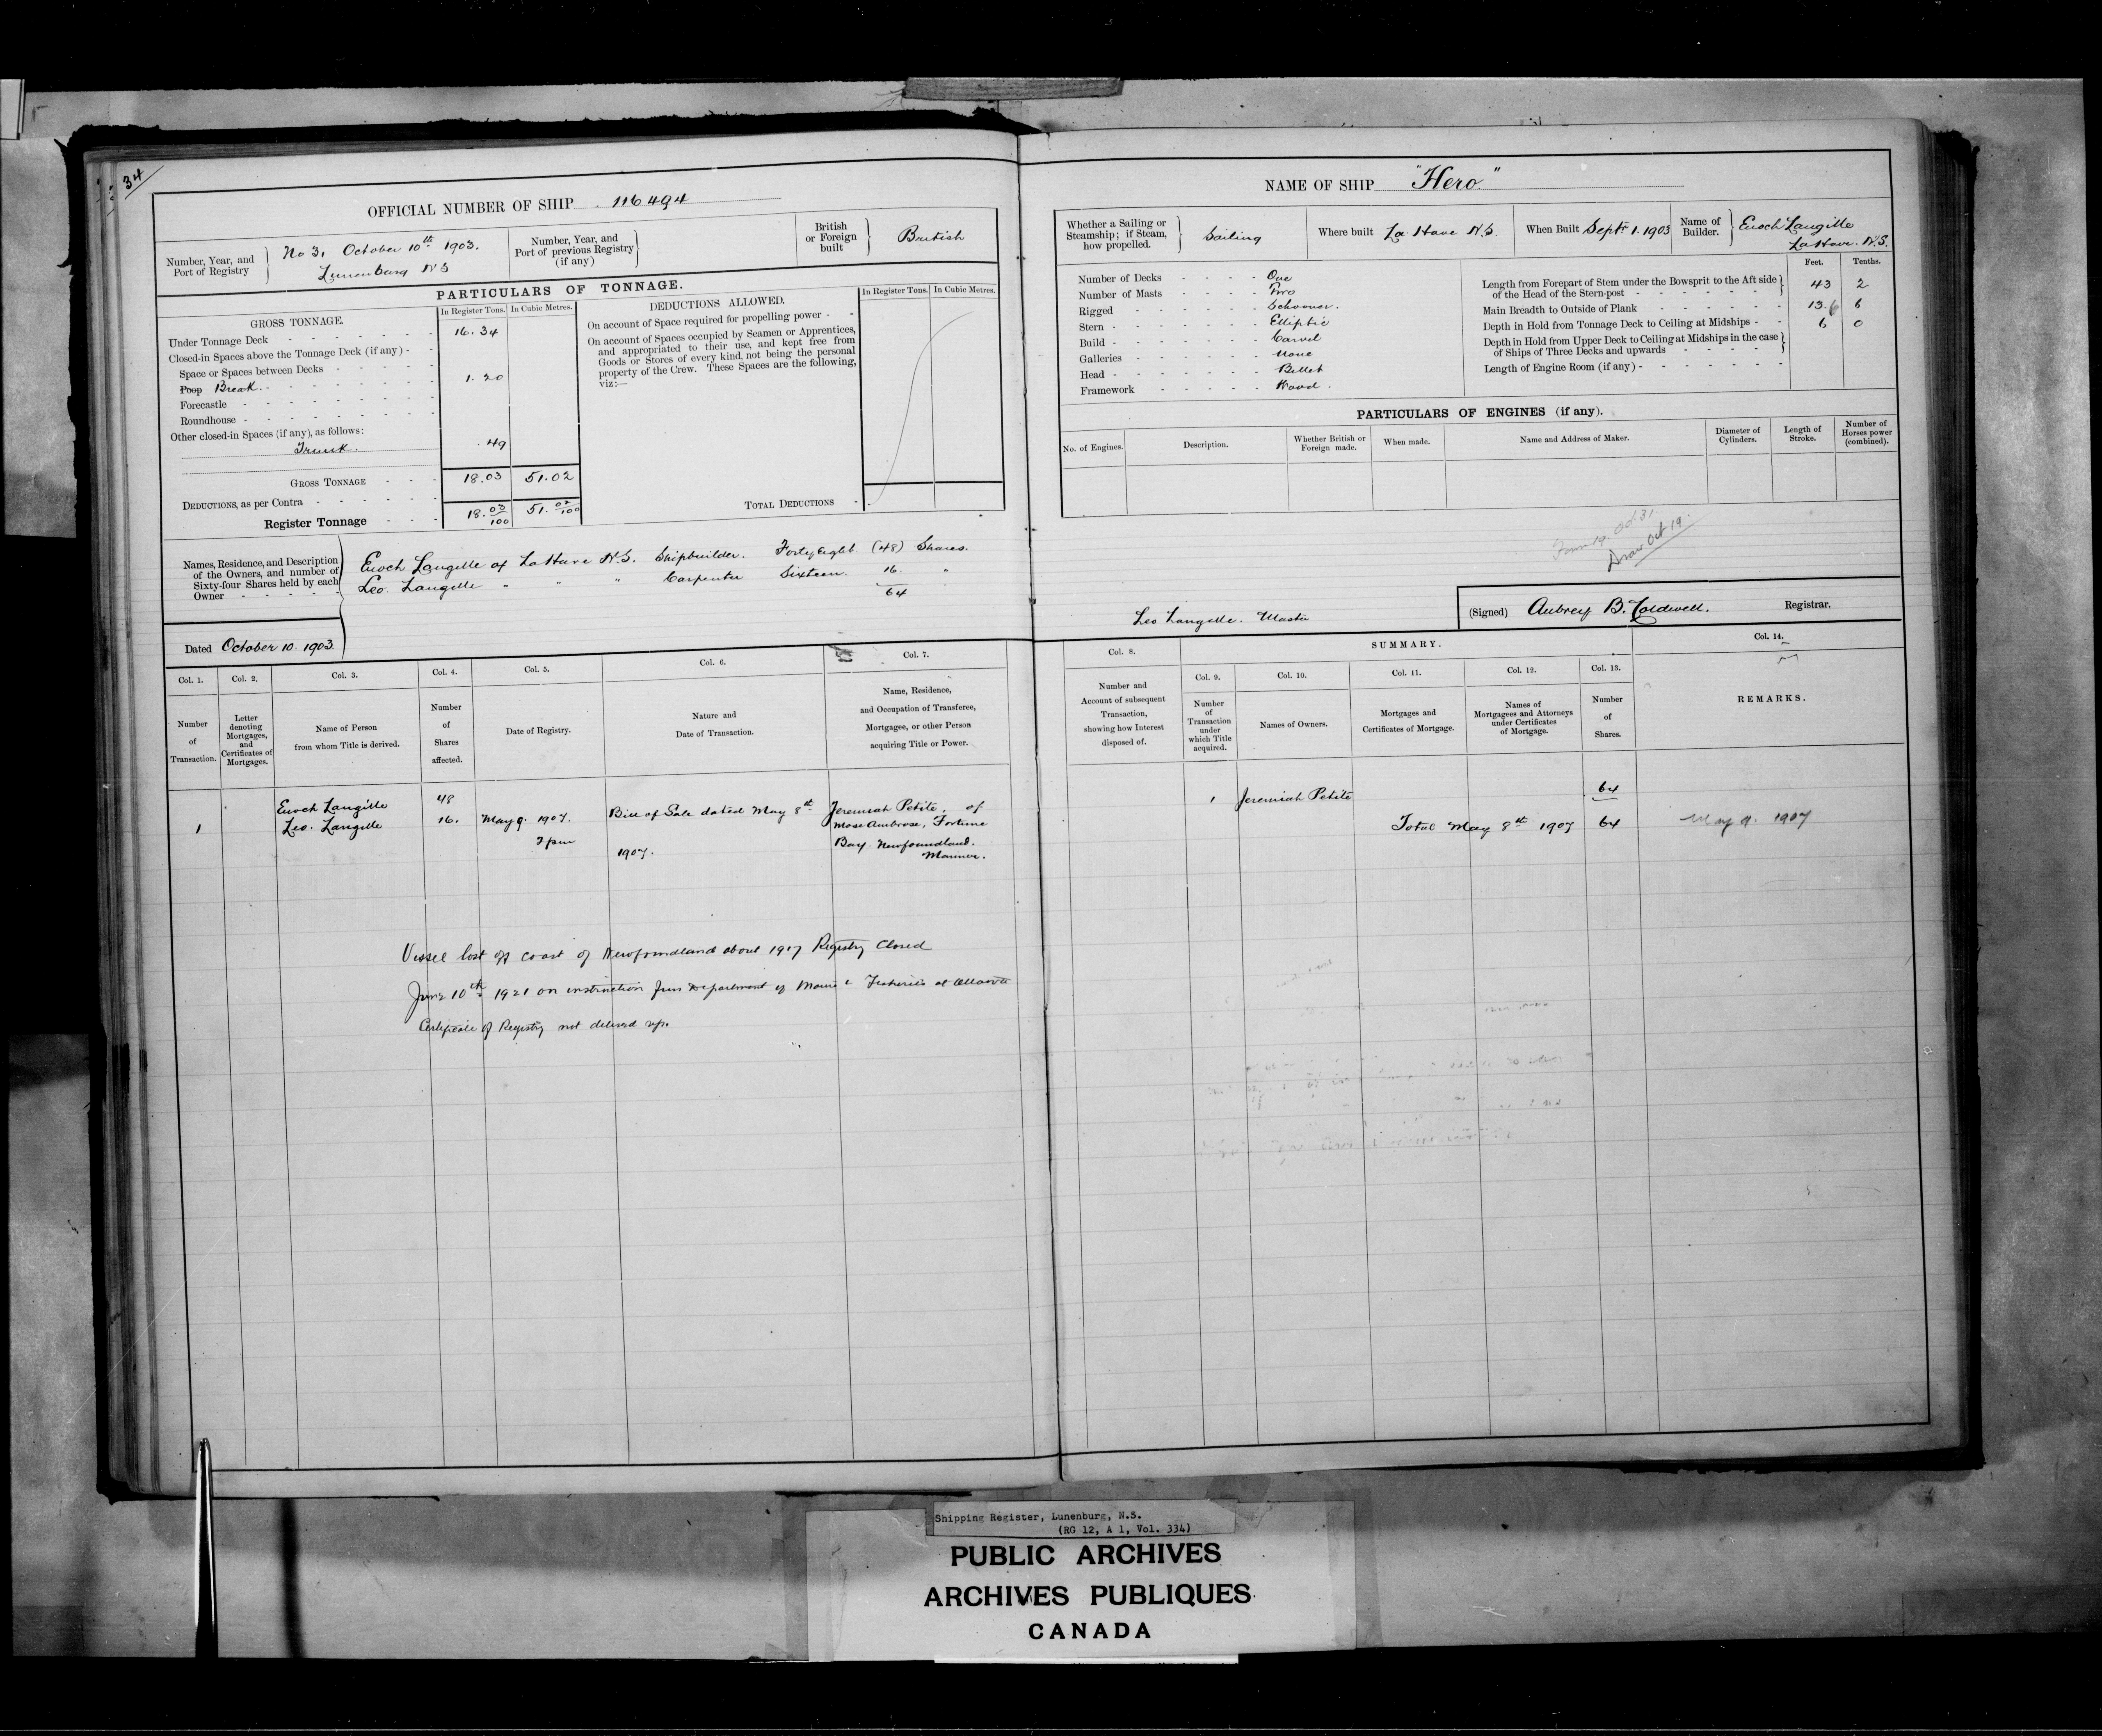 34
OFFICIAL NUMBER OF SHIP 116494
Number, Year, and Port of Registry
No 3, October 10th 1903.
Lunenburg N S
Number, Year, and Port of previous Registry (if any)
British or Foreign built
British
PARTICULARS OF TONNAGE.
GROSS TONNAGE.
In Register Tons. In Cubic Metres.
Under Tonnage Deck 16.34
Closed-in Spaces above the Tonnage Deck (if any)
Space or Spaces between Decks
Poop Break. 1.20
Forecastle
Roundhouse
Other closed-in Spaces (if any), as follows:
Trunk. .49
GROSS TONNAGE 18.03 51.02
DEDUCTIONS, as per Contra
Register Tonnage 18.03/100 51.02/100
DEDUCTIONS ALLOWED.
In Register Tons. In Cubic Metres.
On account of Space required for propelling power
On account of Spaces occupied by Seamen or Apprentices,
and appropriated to their use, and kept free from
Goods or Stores of every kind, not being the personal
property of the Crew. These Spaces are the following,
viz:—
TOTAL DEDUCTIONS
Names, Residence, and Description
of the Owners, and number of
Sixty-four Shares held by each
Owner
Enoch Langille of La Have N.S. Shipbuilder. Forty Eight (48) Shares.
Leo Langille " " " Carpenter Sixteen. 16. "
64
Dated October 10. 1903.
Col. 1. Col. 2. Col. 3. Col. 4. Col. 5. Col. 6. Col. 7.
Number of Transaction.
Letter denoting Mortgages, and Certificates of Mortgages.
Name of Person from whom Title is derived.
Number of Shares affected.
Date of Registry.
Nature and Date of Transaction.
Name, Residence, and Occupation of Transferee, Mortgagee, or other Person acquiring Title or Power.
Enoch Langille 48 Bill of Sale dated May 8th Jeremiah Petite, of
1 Leo. Langille 16. May 9. 1907. Mose Ambrose, Fortune
2 pm 1907. Bay Newfoundland.
Mariner.
Vessel lost off coast of Newfoundland about 1917 Registry Closed
June 10th 1921 on instruction from Department of Marine & Fisheries at Ottawa
Certificate of Registry not delivered up.
NAME OF SHIP "Hero"
Whether a Sailing or Steamship; if Steam, how propelled.
Sailing
Where built La Have N.S.
When Built Septr 1. 1903
Name of Builder.
Enoch Langille
LaHave. N.S.
Number of Decks One
Number of Masts Two
Rigged Schooner.
Stern Elliptic
Build Carvel
Galleries None
Head Billet
Framework Wood.
Feet. Tenths.
Length from Forepart of Stem under the Bowsprit to the Aft side
of the Head of the Stern-post 43 2
Main Breadth to Outside of Plank 13.6 6
Depth in Hold from Tonnage Deck to Ceiling at Midships 6 0
Depth in Hold from Upper Deck to Ceiling at Midships in the case
of Ships of Three Decks and upwards
Length of Engine Room (if any)
PARTICULARS OF ENGINES (if any).
No. of Engines. Description. Whether British or Foreign made. When made. Name and Address of Maker. Diameter of Cylinders. Length of Stroke. Number of Horses power (combined).
Form 19. Oct 31.
Draw Oct 19.
Leo Langille. Master
(Signed) Aubrey B. Caldwell. Registrar.
Col. 8. SUMMARY. Col. 14.
Col. 9. Col. 10. Col. 11. Col. 12. Col. 13.
Number and Account of subsequent Transaction, showing how Interest disposed of.
Number of Transaction under which Title acquired.
Names of Owners.
Mortgages and Certificates of Mortgage.
Names of Mortgagees and Attorneys under Certificates of Mortgage.
Number of Shares.
REMARKS.
1 Jeremiah Petite 64
Total May 8th 1907 64 May 9. 1907
Shipping Register, Lunenburg, N.S.
(RG 12, A 1, Vol. 334)
PUBLIC ARCHIVES
ARCHIVES PUBLIQUES
CANADA